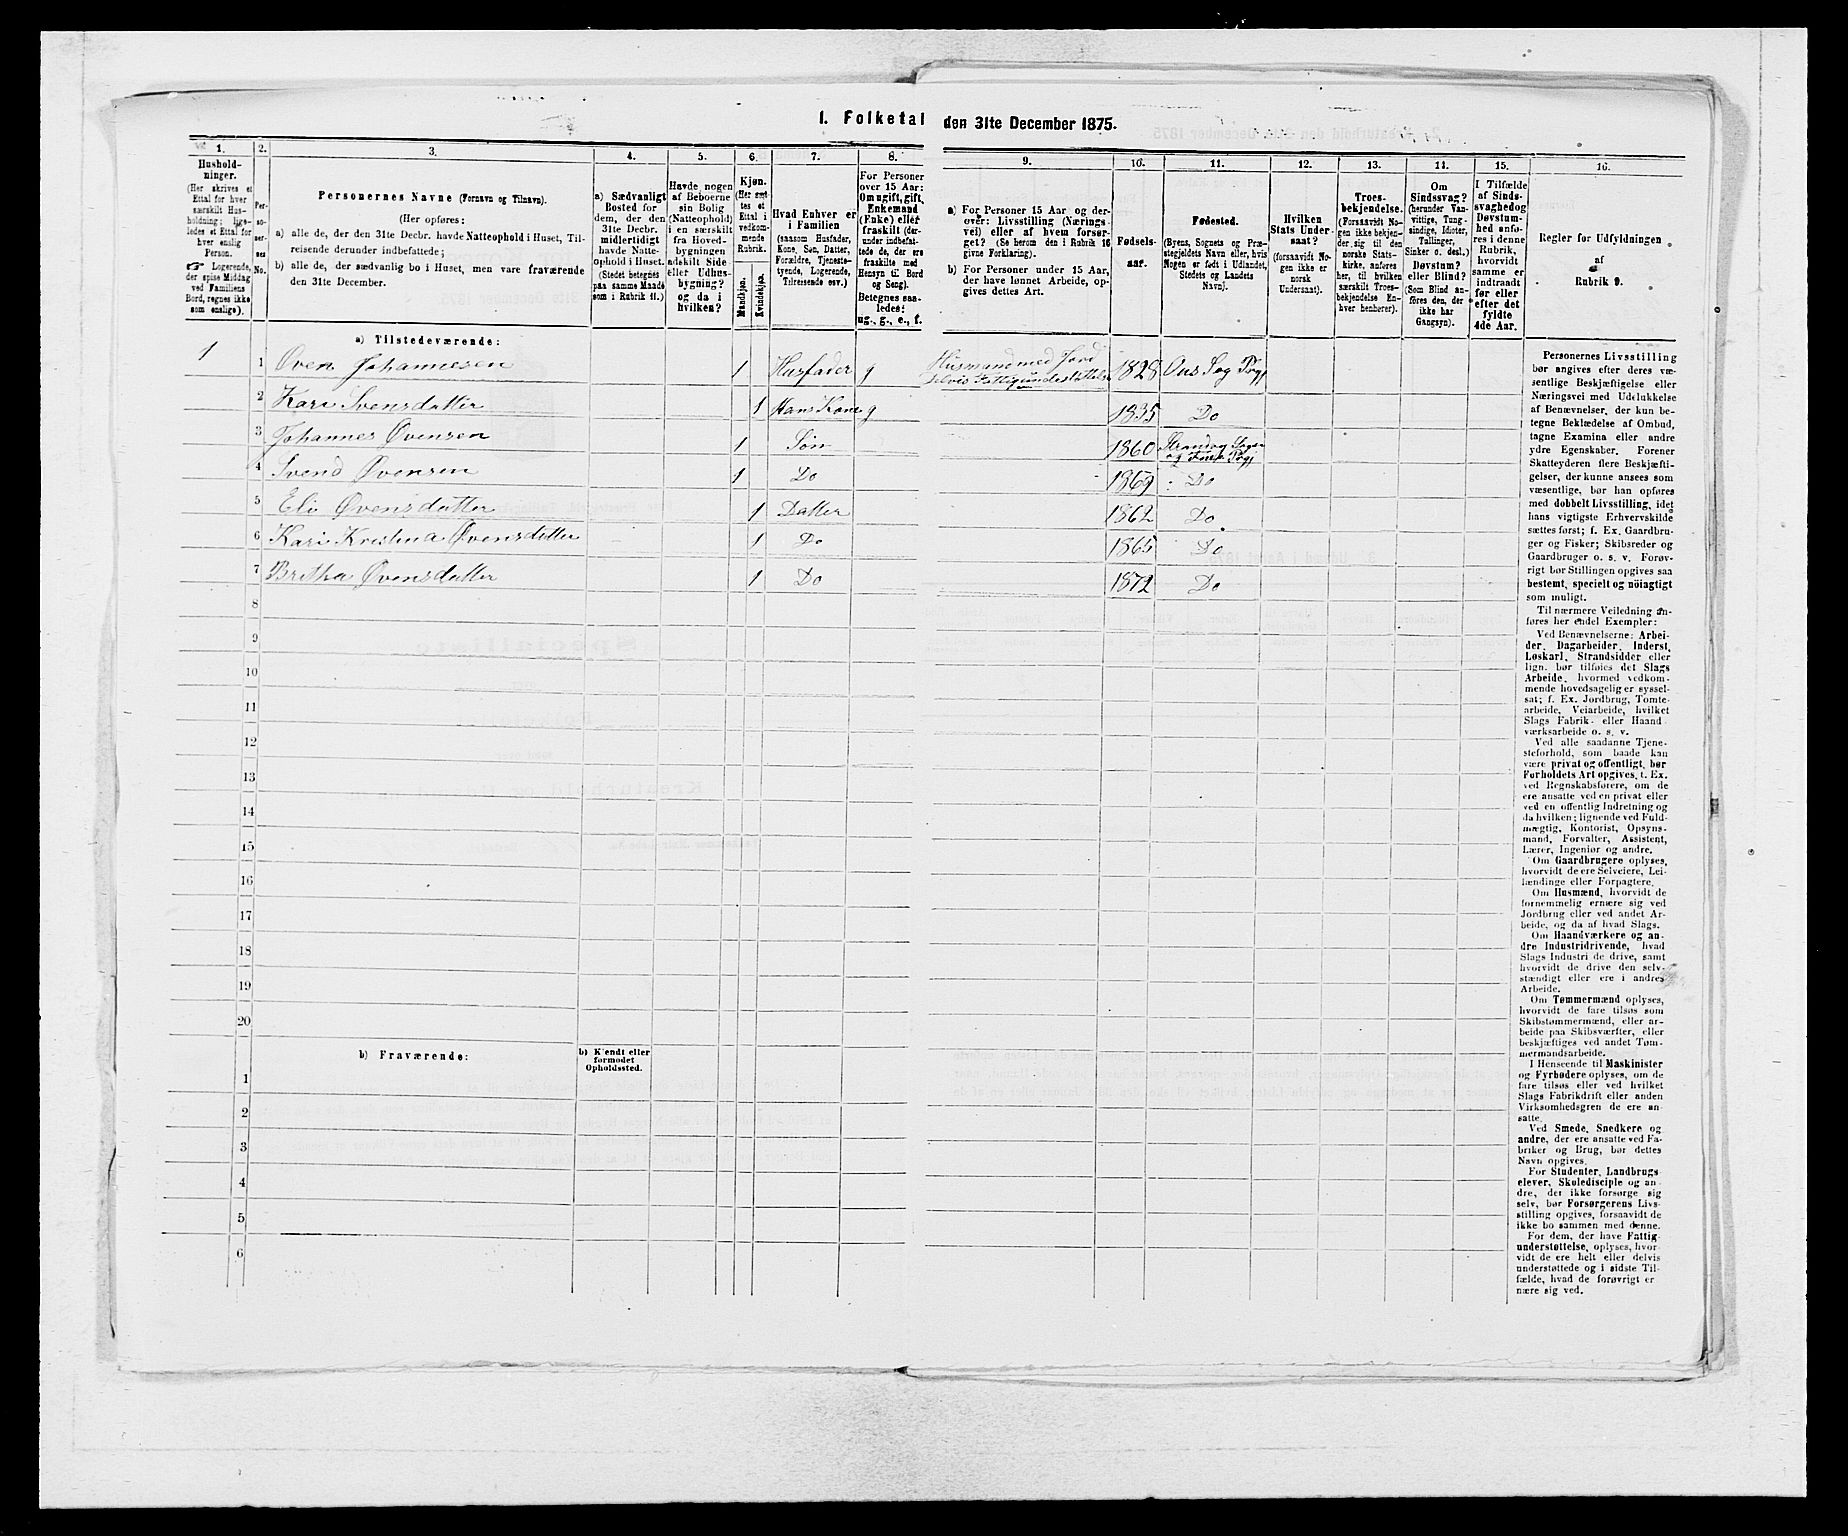 I. Folketal den 31te December 1875.
1.
2.
3.
4.
5.
6.
7.
8.
9.
10.
11.
12.
13.
14.
15.
16.
Hushold-
ninger.
(Her skrives et
Ettal for hver
særskilt Hus-
holdning; lige-
ledes et Ettal for
hver enslig
Person.
☞ Logerende,
der spise Middag
ved Familiens
Bord, regnes ikke
som enslige).
Per-
so-
ner-
nes
No.
Personernes Navne (Fornavn og Tilnavn).
(Her opføres:
a) alle de, der den 31te Decbr. havde Natteophold i Huset, Til-
reisende derunder indbefattede;
b) alle de, der sædvanlig bo i Huset, men vare fraværende
den 31te December.
a) Sædvanligt
Bosted for
dem, der den
31te Decbr.
midlertidigt
havde Natte-
ophold i Huset.
(Stedet betegnes
paa samme Maade
som i Rubrik 11.)
Havde nogen
af Beboerne
sin Bolig
(Natteophold)
i en særskilt
fra Hoved-
bygningen
adskilt Side
eller Udhus-
bygning?
og da i
hvilken?
Kjøn.
(Her sæt-
tes et
Ettal i
vedkom-
mende
Rubrik.
Mandkjøn.
Kvindekjøn.
Hvad Enhver er
i Familien
(saasom Husfader,
Kone, Søn, Datter,
Forældre, Tjeneste-
tyende, Logerende,
Tilreisende osv.)
For Personer
over 15 Aar:
Om ugift, gift,
Enkemand
(Enke) eller
fraskilt (der-
under indbefat-
tede de, der ere
fraskilte med
Hensyn til Bord
og Seng).
Betegnes saa-
ledes:
ug., g., e., f.
a) For Personer 15 Aar og der-
over: Livsstilling (Nærings-
vei) eller af hvem forsør-
get? (Se herom den i Rubrik 16
givne Forklaring).
b) For Personer under 15 Aar,
der have lønnet Arbeide, op-
gives dettes Art.
Fødsels-
aar.
Fødested.
(Byens, Sognets og Præ-
stegjeldets Navn eller, hvis
Nogen er født i Udlandet,
Stedets og Landets
Navn).
Hvilken
Stats Under-
saat?
(forsaavidt No-
gen ikke er
norsk
Undersaat).
Troes-
bekjendelse.
(Forsaavidt No-
gen ikke bekjen-
der sig til den
norske Stats-
kirke, anføres
her, til hvilken
særskilt Troes-
bekjendelse En-
hver henhører).
Om
Sindssvag?
(herunder Van-
vittige, Tung-
sindige, Idioter,
Tullinger,
Sinker o. desl.)
Døvstum?
eller Blind?
(Som Blind an-
føres den, der
ikke har
Gangsyn).
I Tilfælde
af Sinds-
svaghed og
Døvstum-
hed anfø-
res i denne
Rubrik,
hvorvidt
samme er
indtraadt
før eller
efter det
fyldte
4de Aar.
Regler for Udfyldningen
af
Rubrik 9.
a) Tilstedeværende:
1 1 Oven Johannesen 1 Husfader g Husmand med Jord
delvis Fattigunderstøttelse 1828 Ous Sog Prgj
2 Kari Svensdatter 1 Hans Kone g 1835 Do
3 Johannes Øvensen 1 Søn 1860
4 Svend Øvensen 1 Do 1869 Do
5 Eli Øvensdatter 1 Datter 1862 Do
6 Kari Kristina Øvensdatter 1 Do 1865 Do
7 Britha Øvensdatter 1 Do 1872 Do
8
9
10
11
12
13
14
15
16
17
18
19
20
b) Fraværende:
b) Kjendt eller
formodet
Opholdssted.
1
2
3
4
5
6
Personernes Livsstilling
bør angives efter deres væ-
sentlige Beskjæftigelse eller
Næringsvei med Udelukkelse
af Benævnelser, der kun be-
tegne Beklædelse af Ombud,
tagne Examina eller andre
ydre Egenskaber. Forener
Skatteyderen flere Beskjæfti-
gelser, der kunne ansees som
væsentlige, bør han opføres
med dobbelt Livsstilling, idet
hans vigtigste Erhvervskilde
sættes først; f. Ex. Gaardbru-
ger og Fisker; Skibsreder og
Gaardbruger o. s. v. Forøv-
rigt bør Stillingen opgives saa
bestemt, specielt og nöiagtigt
som muligt.
Til nærmere Veiledning an-
føres her endel Exempler:
Ved Benævnelserne: Arbei-
der, Dagarbeider, Inderst,
Løskarl, Strandsidder eller
lign. bør tilføies det Slags
Arbeide, hvormed vedkom-
mende hovedsagelig er syssel-
sat; f. Ex. Jordbrug, Tomte-
arbeide, Veiarbeide, hvilket
Slags Fabrik- eller Haand-
værksarbeide o. s. v.
Ved alle saadanne Tjene-
steforhold, som baade kan
være privat og offentligt, bør
Forholdets Art opgives, t. Ex.
ved Regnskabsførere, om de
ere ansatte ved en privat eller
ved en offentlig Indretning og
da hvilken; lignende ved Fuld-
mægtig, Kontorist, Opsyns-
mand, Forvalter, Assistent,
Lærer, Ingeniør og andre.
Om Gaardbrugere oplyses,
hvorvidt de ere Selveiere, Lei-
lændinge eller Forpagtere.
Om Husmænd, hvorvidt de
fornemmelig ernære sig ved
Jordbrug eller ved andet Ar-
beide, og da af hvad Slags.
Om Haandværkere og an-
dre Industridrivende, hvad
Slags Industri de drive, samt
hvorvidt de drive den selv-
stændigt eller ere i andres
Arbeide.
Om Tømmermænd oplyses,
hvorvidt de fare tilsøs som
Skibstømmermænd, eller ar-
beide paa Skibsværfter, eller
beskjæftiges ved andet Tøm-
mermandsarbeide.
I Henseende til Maskinister
og Fyrbødere oplyses, om de
fare tilsøs eller ved hvilket
Slags Fabrikdrift eller anden
Virksomhedsgren de ere an-
satte.
Ved Smede, Snedkere og
andre, der ere ansatte ved Fa-
briker og Brug, bør dettes
Navn opgives.
For Studenter, Landbrugs-
elever, Skoledisciple og an-
dre, der ikke forsørge sig
selv, bør Forsørgerens Livs-
stilling opgives, forsaavidt de
ikke bo sammen med denne.
For dem, der have Fattig-
understøttelse, oplyses, hvor-
vidt de ere helt eller delvis
understøttede og i sidste Til-
fælde, hvad de forøvrigt er
nære sig ved.